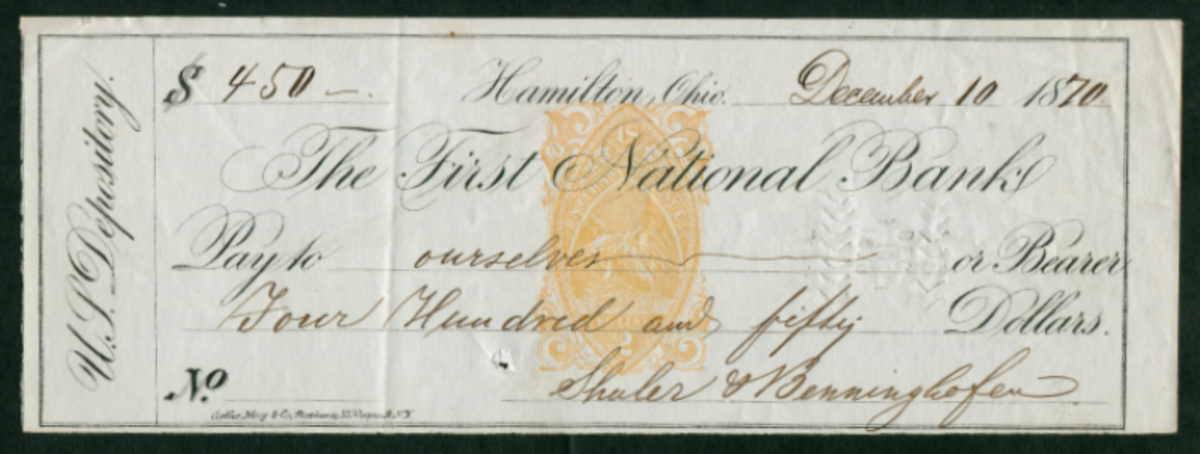 U.S. Depository.
$ 450 —. Hamilton, Ohio. December 10 1870.
The First National Bank
Pay to ourselves or Bearer
Four Hundred and fifty Dollars.
No. Shuler & Benninghofen